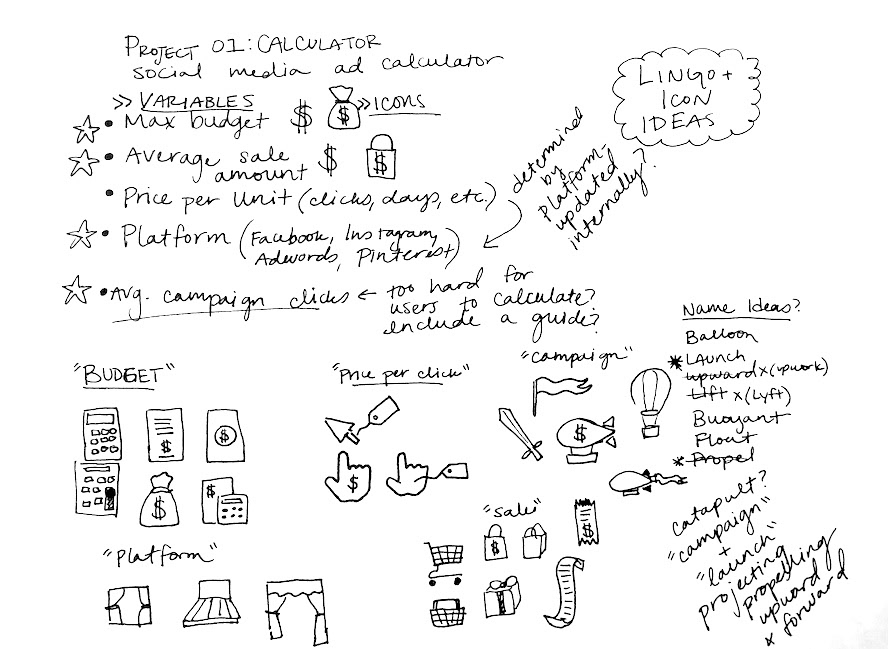 PROJECT 01: CALCULATOR
social media ad calculator
>> VARIABLES
>> ICONS
• Max budget $ $
• Average sale amount $ $
• Price per Unit (clicks, days, etc.)
• Platform (Facebook, Instagram,
Adwords, Pinterest)
determined
by
platform-
updated
internally?
• Avg. campaign clicks ← too hard for
users to calculate?
include a guide?
LINGO +
ICON
IDEAS
Name Ideas?
Balloon
* LAunch
upward x (upwork)
Lift x (Lyft)
Buoyant
Float
* Propel
catapult?
"campaign"
+
"launch"
projecting
propelling
upward
x forward
"BUDGET"
$
$
$
$
"Price per click"
$
"campaign"
$
"Platform"
"sale"
$
$